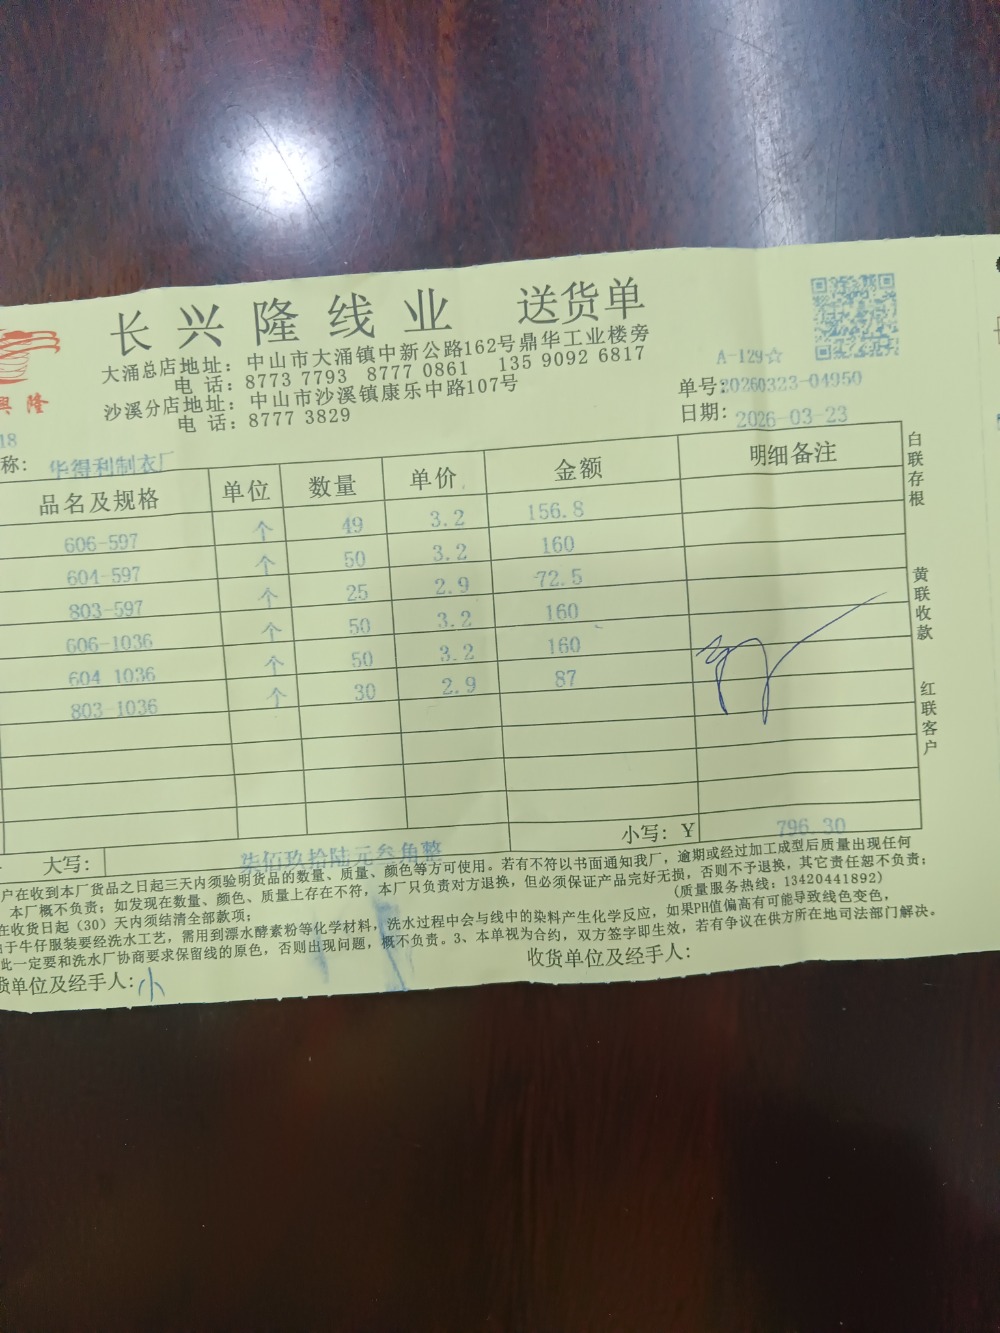 长兴隆线业 送货单
大涌总店地址：中山市大涌镇中新公路162号鼎华工业楼旁
电 话：8773 7793 8777 0861 135 9092 6817
沙溪分店地址：中山市沙溪镇康乐中路107号
电 话：8777 3829
興隆
A-129☆
单号:20260323-04950
日期: 2026-03-23
18
称: 华得利制衣厂
品名及规格 单位 数量 单价 金额 明细备注
606-597 个 49 3.2 156.8
604-597 个 50 3.2 160
803-597 个 25 2.9 72.5
606-1036 个 50 3.2 160
604 1036 个 50 3.2 160
803-1036 个 30 2.9 87
白联存根
黄联收款
红联客户
小写: Y 796.30
大写: 柒佰玖拾陆元叁角整
户在收到本厂货品之日起三天内须验明货品的数量、质量、颜色等方可使用。若有不符以书面通知我厂，逾期或经过加工成型后质量出现任何
本厂概不负责；如发现在数量、颜色、质量上存在不符，本厂只负责对方退换，但必须保证产品完好无损，否则不予退换，其它责任恕不负责；
在收货日起（30）天内须结清全部款项；
(质量服务热线：13420441892)
由于牛仔服装要经洗水工艺，需用到漂水酵素粉等化学材料，洗水过程中会与线中的染料产生化学反应，如果PH值偏高有可能导致线色变色，
此一定要和洗水厂协商要求保留线的原色，否则出现问题，概不负责。3、本单视为合约，双方签字即生效，若有争议在供方所在地司法部门解决。
货单位及经手人: 小
收货单位及经手人: